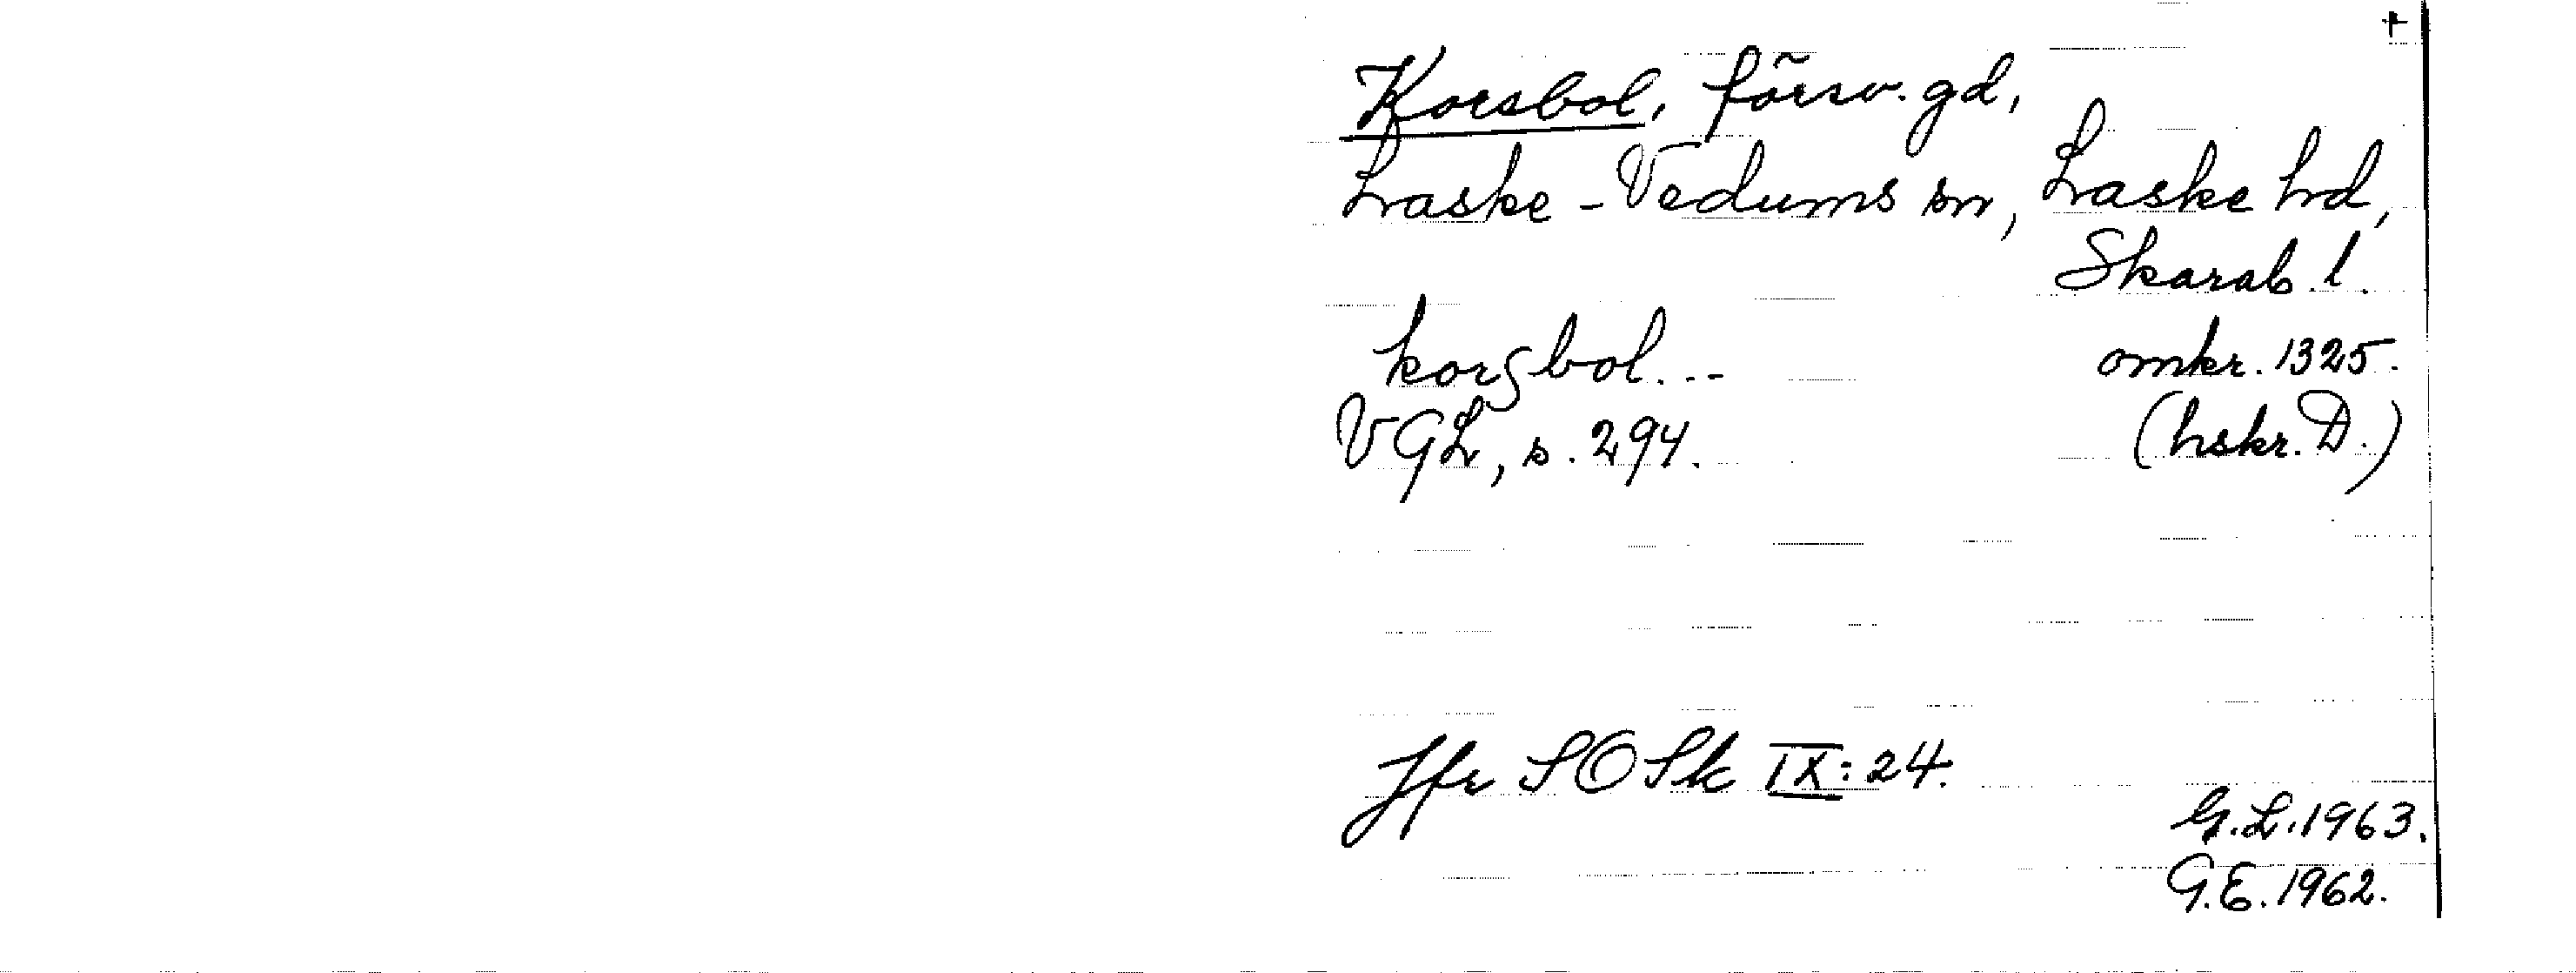 +
Korsbol, försv. gd,
Laske-Vedums sn, Laske hd,
Skarab. l.
korsbol... omkr. 1325.
VGL, s. 294. (hskr. D.)
Jfr SOSk IX: 24.
G.L. 1963.
G.E. 1962.